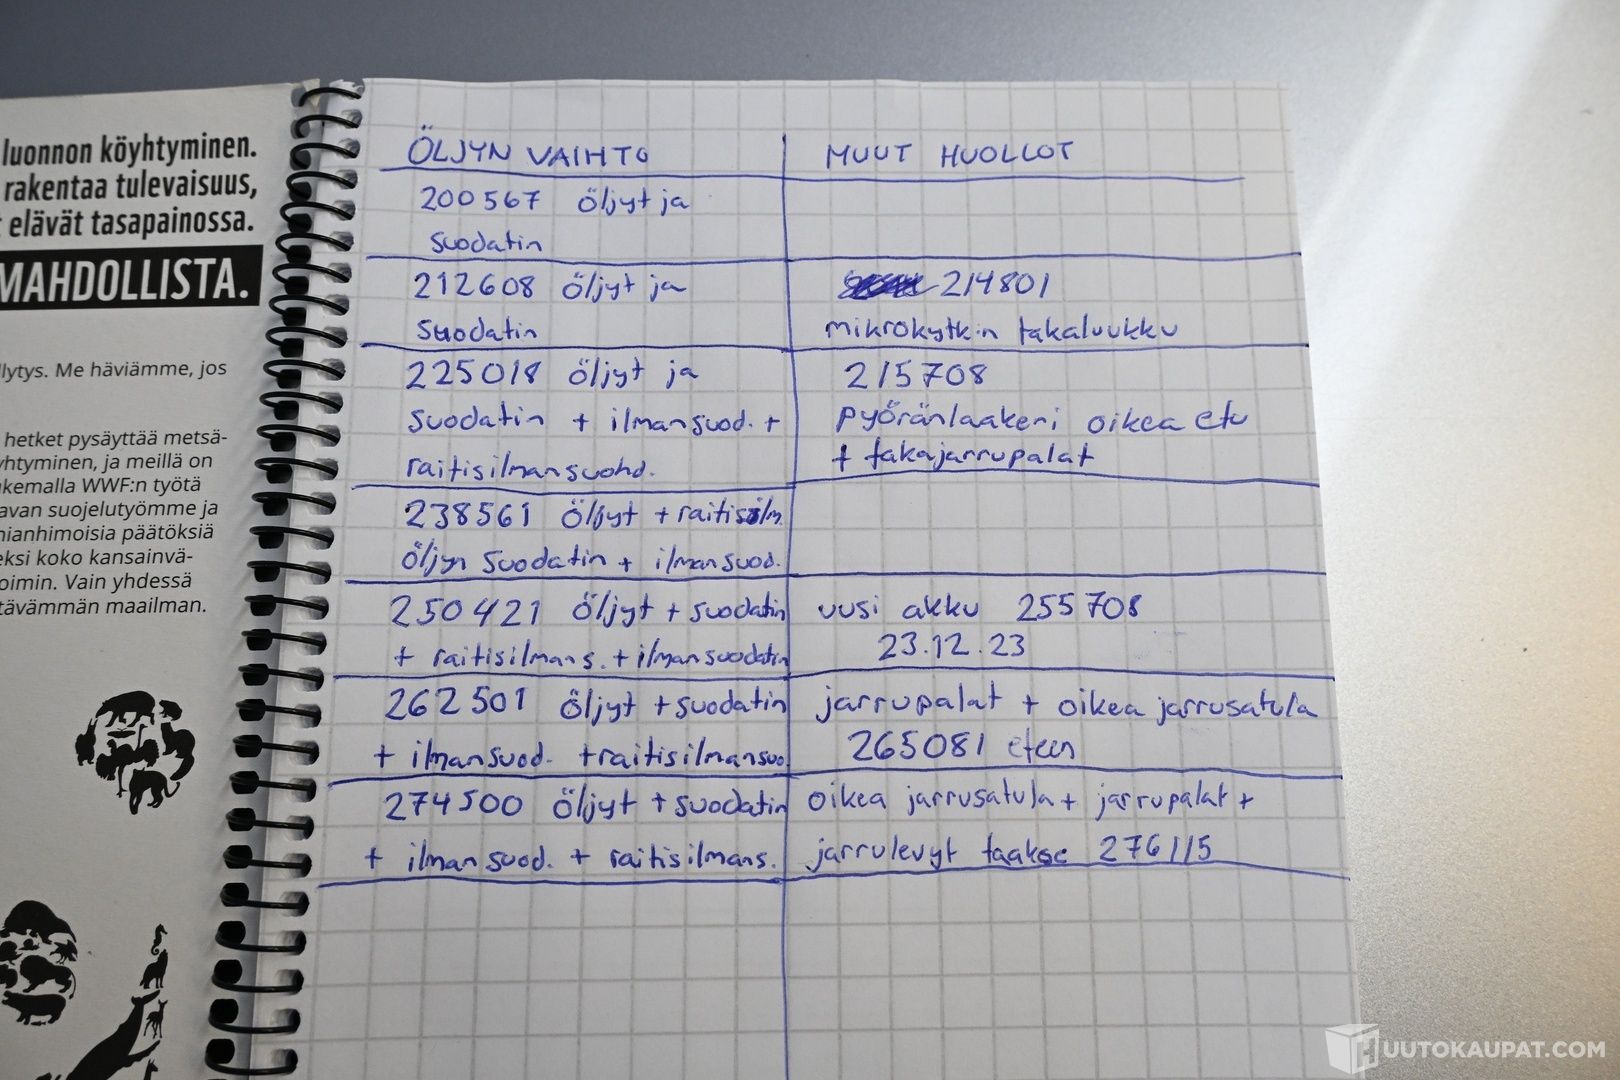 luonnon köyhtyminen.
rakentaa tulevaisuus,
elävät tasapainossa.
MAHDOLLISTA.
llytys. Me häviämme, jos
hetket pysäyttää metsä-
yhtyminen, ja meillä on
kemalla WWF:n työtä
avan suojelutyömme ja
nianhimoisia päätöksiä
eksi koko kansainvä-
oimin. Vain yhdessä
tävämmän maailman.
ÖLJYN VAIHTO
200567 öljyt ja
suodatin
212608 öljyt ja
suodatin
225018 öljyt ja
suodatin + ilmansuod. +
raitisilmansuohd.
238561 öljyt + raitisilm.
öljyn suodatin + ilmansuod.
250421 öljyt + suodatin
+ raitisilmans. + ilmansuodatin
262501 öljyt + suodatin
+ ilmansuod. + raitisilmansuo
274500 öljyt + suodatin
+ ilmansuod. + raitisilmans.
MUUT HUOLLOT
214801
mikrokytkin takaluukku
215708
pyöränlaakeri oikea etu
+ takajarrupalat
uusi akku 255708
23.12.23
jarrupalat + oikea jarrusatula
265081 eteen
oikea jarrusatula + jarrupalat +
jarrulevyt taakse 276115
HUUTOKAUPAT.COM